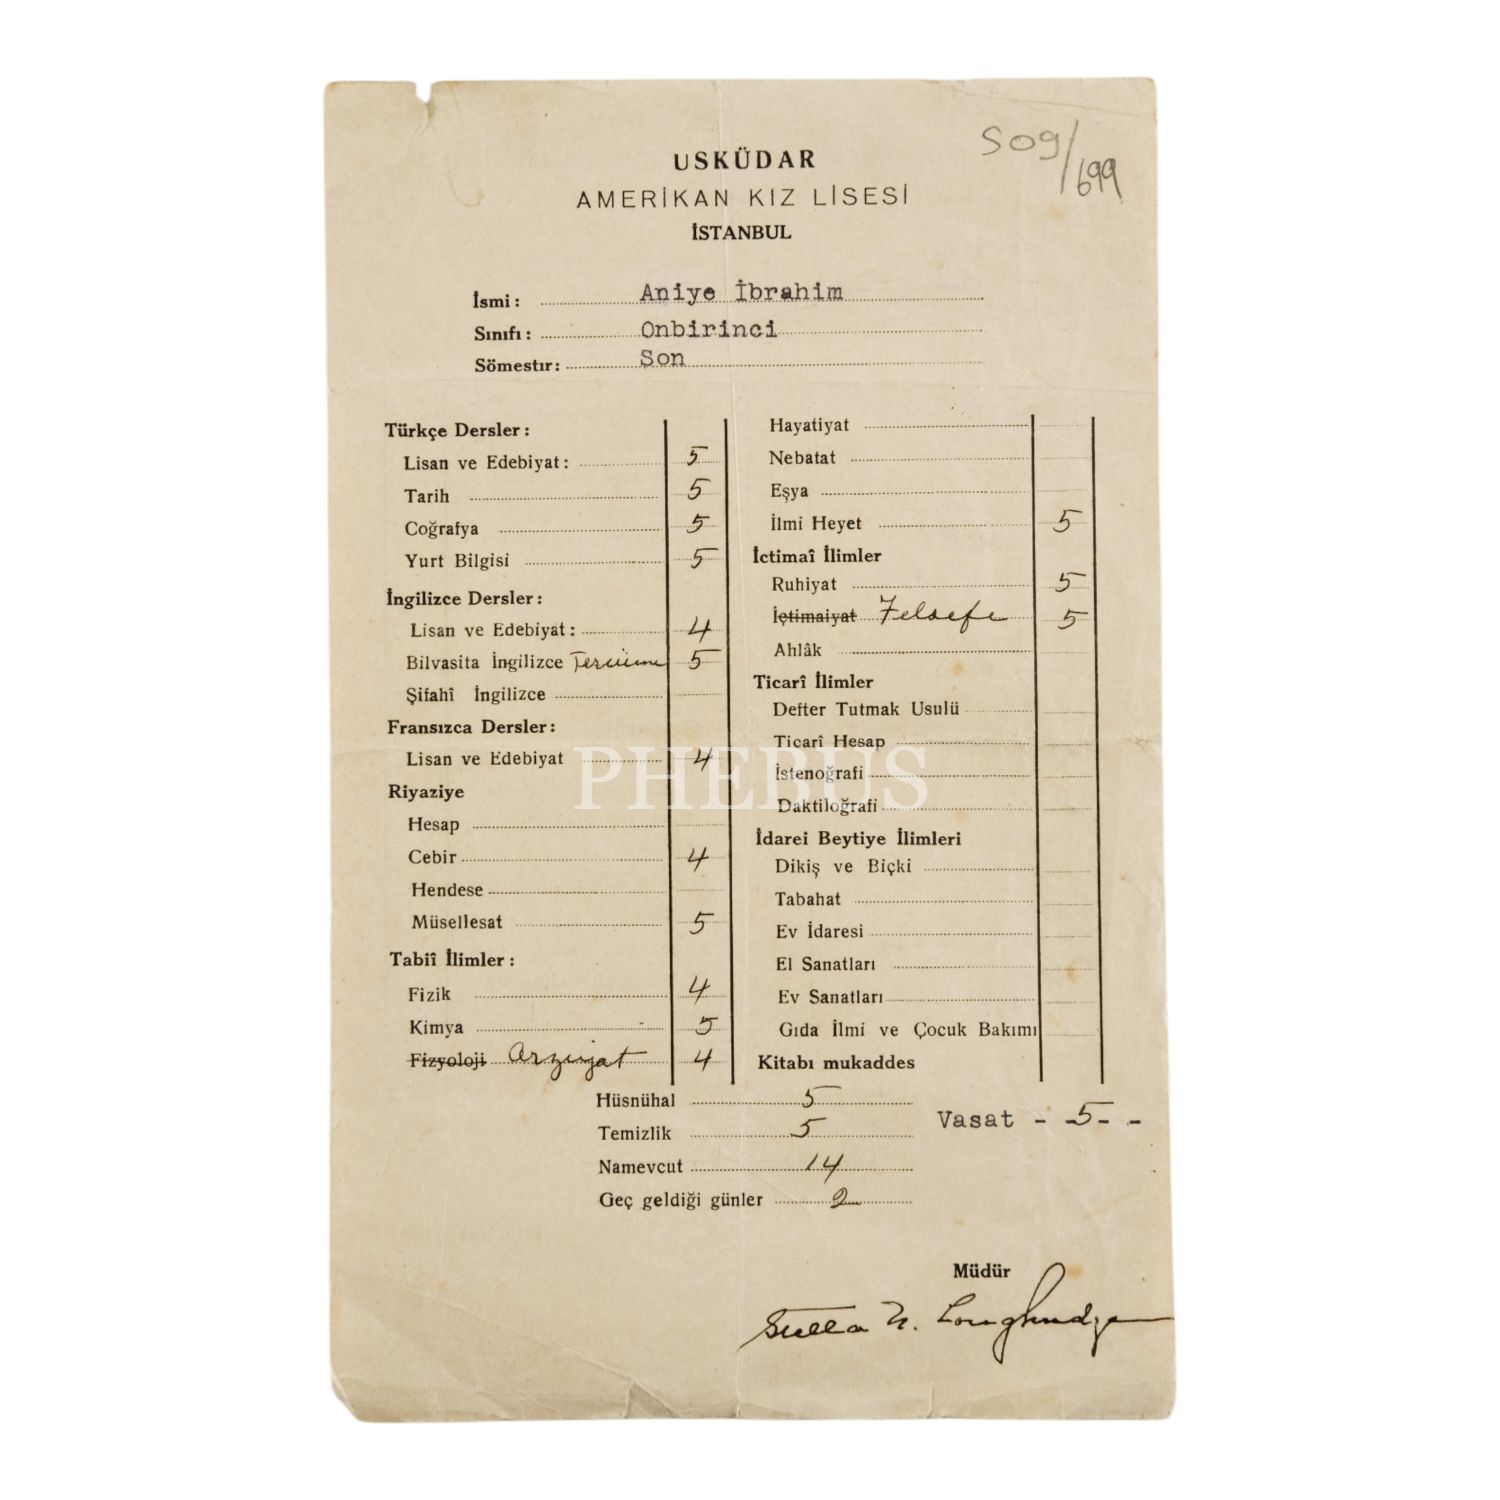 509/699
USKÜDAR
AMERİKAN KIZ LİSESİ
İSTANBUL
İsmi: Aniye İbrahim
Sınıfı: Onbirinci
Sömestır: Son
Türkçe Dersler:
Lisan ve Edebiyat: 5
Tarih 5
Coğrafya 5
Yurt Bilgisi 5
İngilizce Dersler:
Lisan ve Edebiyat: 4
Bilvasita İngilizce Tercüme 5
Şifahî İngilizce
Fransızca Dersler:
Lisan ve Edebiyat 4
Riyaziye
Hesap
Cebir 4
Hendese
Müsellesat 5
Tabiî İlimler:
Fizik 4
Kimya 5
Fizyoloji Arziyat 4
Hayatiyat
Nebatat
Eşya
İlmi Heyet 5
İctimaî İlimler
Ruhiyat 5
İçtimaiyat Felsefe 5
Ahlâk
Ticarî İlimler
Defter Tutmak Usulü
Ticarî Hesap
İstenoğrafi
Daktiloğrafi
İdarei Beytiye İlimleri
Dikiş ve Biçki
Tabahat
Ev İdaresi
El Sanatları
Ev Sanatları
Gıda İlmi ve Çocuk Bakımı
Kitabı mukaddes
Hüsnühal 5
Temizlik 5
Namevcut 14
Geç geldiği günler 2
Vasat - -5- -
Müdür
PHEBUS